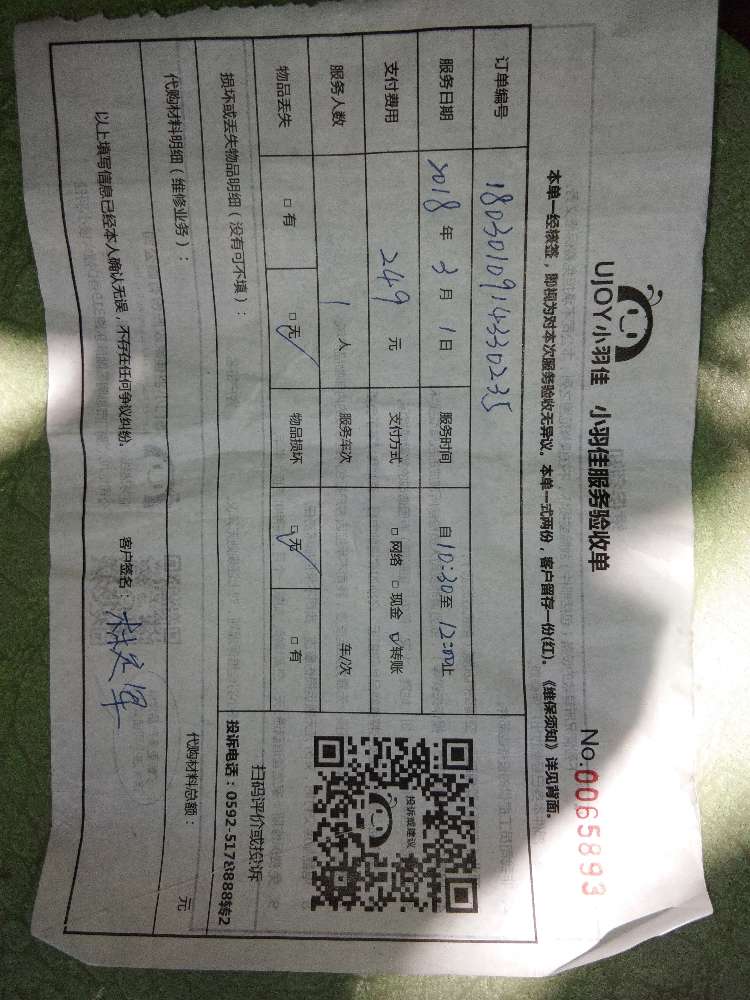 UJOY小羽佳 小羽佳服务验收单
No:0065893
本单一经核签，即视为对本次服务验收无异议。本单一式两份，客户留存一份(红)。《维保须知》详见背面。
订单编号 1803010914330235
服务日期 2018 年 3 月 1 日 服务时间 自 10:30 至 12:00 止
支付费用 249 元 支付方式 □ 网络 □ 现金 ☑ 转账
服务人数 1 人 服务车次 车/次
物品丢失 □ 有 □ 无 ✓ 物品损坏 □ 无 ✓ □ 有
投诉或建议
扫码评价或投诉
投诉电话：0592-5178888转2
损坏或丢失物品明细（没有可不填）：
代购材料明细（维修业务）： 代购材料总额： 元
以上填写信息已经本人确认无误，不存在任何争议纠纷。 客户签名：